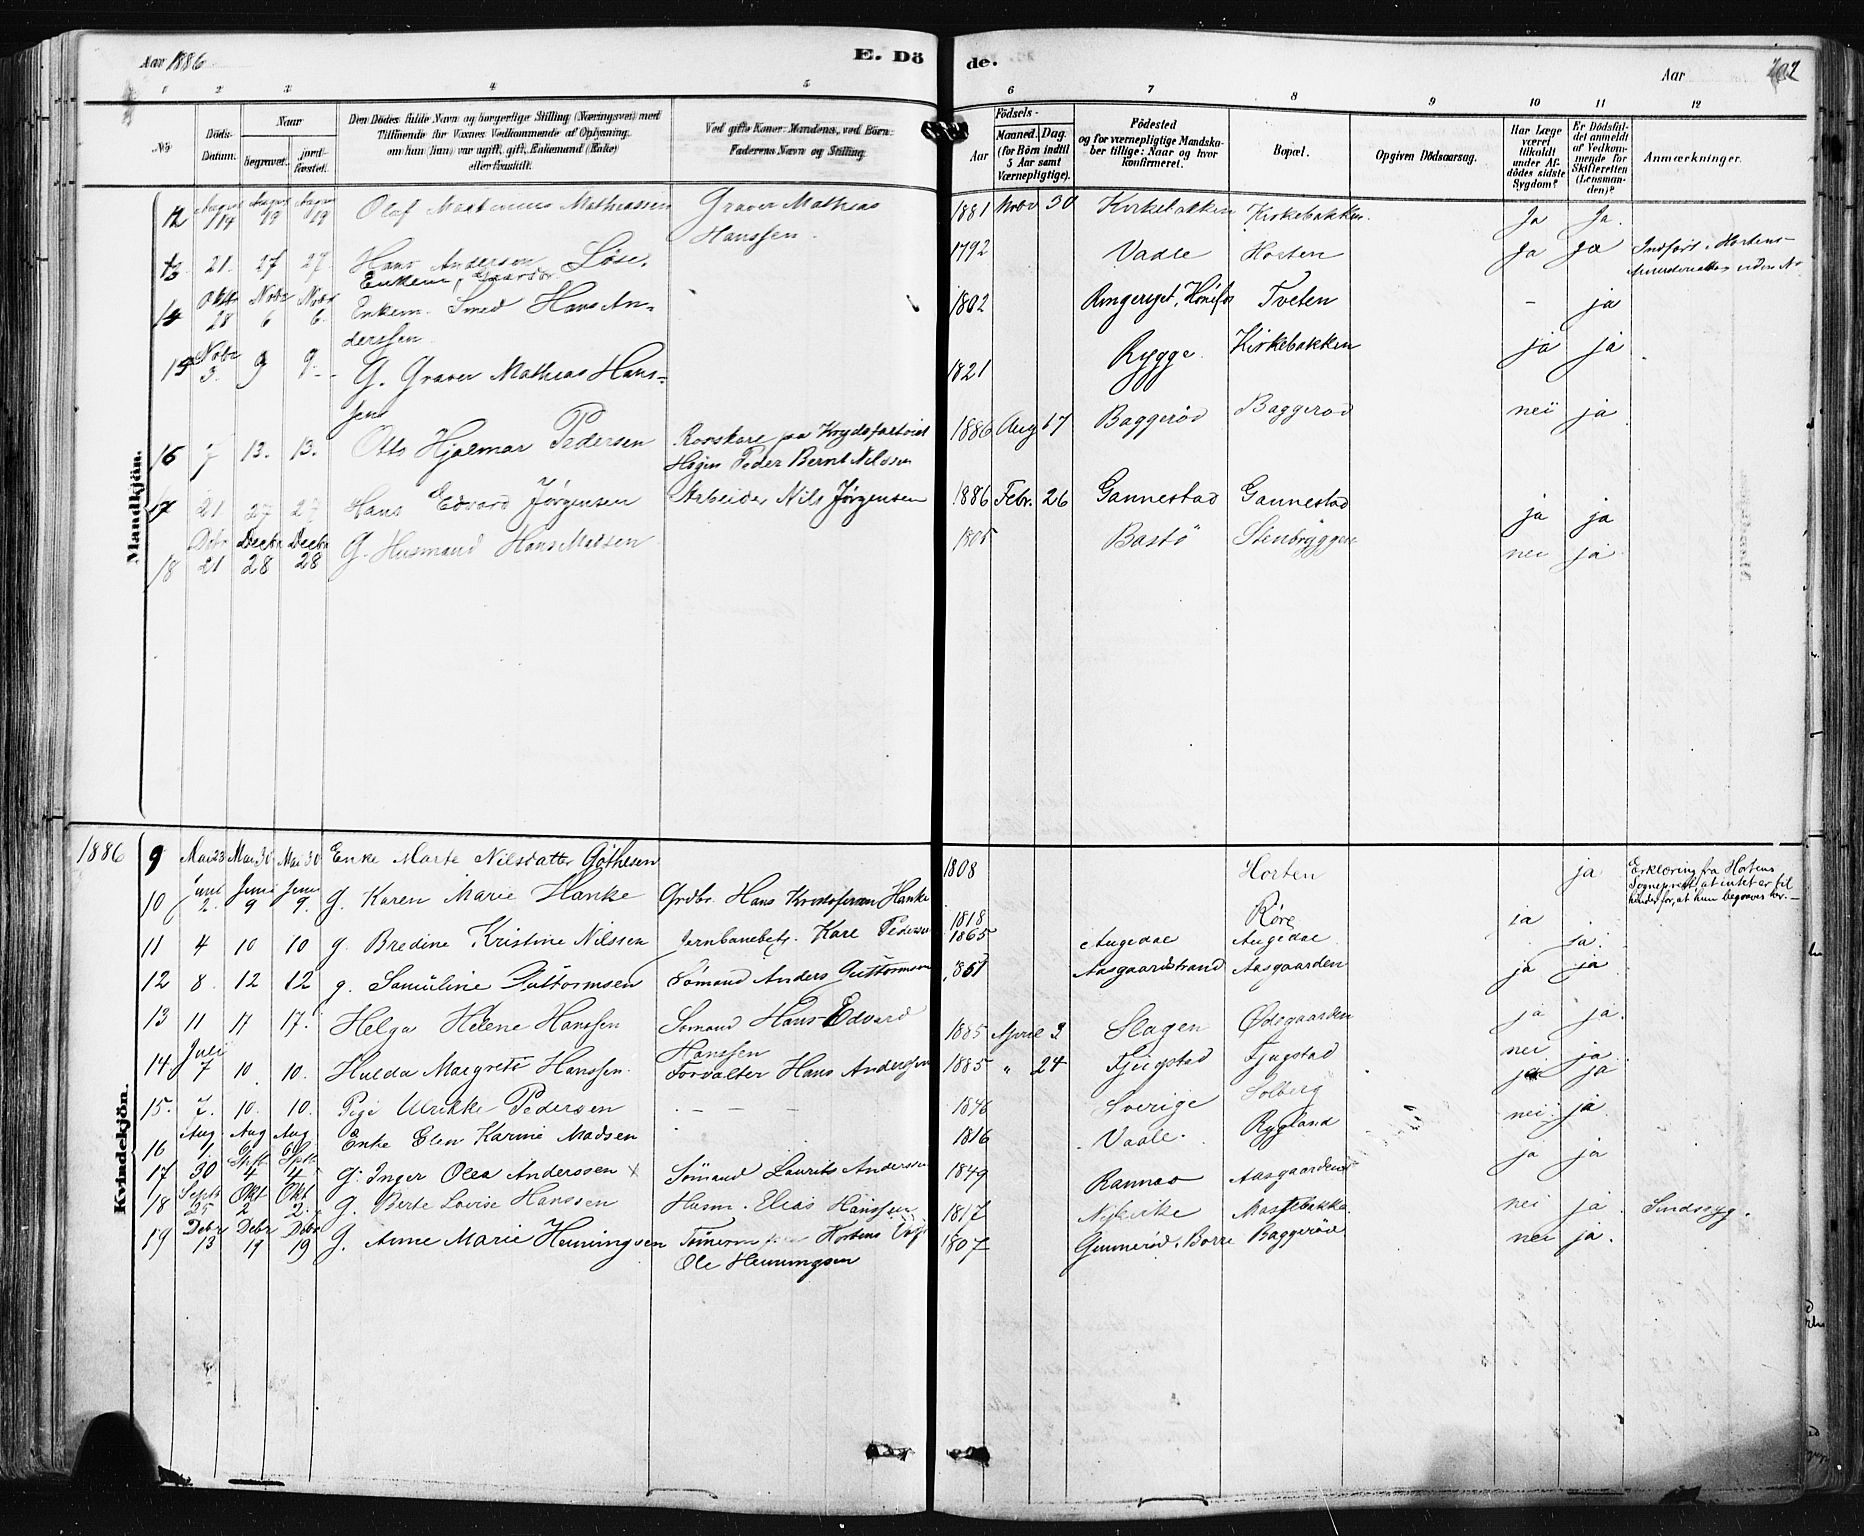 Aar 1886
E. Dö
de.
Aar
202
1 2 3 4 5 6 7 8 9 10 11 12
No
Döds-Datum.
Naar
begravet.
jord-fæstet.
Den Dödes fulde Navn og borgerlige Stilling (Næringsvei) med
Tilföiende for Voxnes Vedkommende af Oplysning,
om han (hun) var ugift, gift, Enkemand (Enke)
eller fraskilt.
Ved gifte Koner: Mandens, ved Börn:
Faderens Navn og Stilling.
Födsels-
Aar
Maaned. Dag.
(for Börn indtil
5 Aar samt
Værnepligtige).
Födested
og for værnepligtige Mandska-
ber tillige: Naar og hvor
konfirmeret.
Bopæl.
Opgiven Dödsaarsag.
Har Læge
været
tilkaldt
under Af-
dödes sidste
Sygdom?
Er Dödsfal-
det anmeldt
af Vedkom-
mende for
Skifteretten
(Lensman-
den)?
Anmærkninger.
Mandkjön.
12 August 14 August 19 August 19 Olaf Martinius Mathiassen Graver Mathias 1881 Novbr 30 Kirkebakken Kirkebakken. Ja Ja.
Hanssen.
13 21. 27 27 Hans Anderson Löse. 1792 Vaale Horten Ja Ja Indført i Hortens
Enkem,
14 Oktr 28 Novbr 6 Novbr 6. Enkem. Smed Hans An- 1802 Ringeriget, Hönefos Tveten - ja
derssen.
15 Novbr 3. 9 9. G. Graver Mathias Hans- 1821 Rygge Kirkebakken ja ja
sen
16 7 13. 13. Otto Hjalmar Pedersen Rorskare paa Krydsfartöiet 1886 Aug 17 Baggeröd Baggeröd nei ja
Peder Bernt Nilssen
17 21 27 27 Hans Edvard Jørgensen Arbeider Nils Jørgensen 1886 Febr. 26 Gannestad Gannestad ja ja
18 Debr 21 Decbr 28 Decbr 28 G. Husmand Hans Madsen 1805 Bastö Stenbryggen nei ja
Kvindekjön.
1886 9 Mai 23 Mai 30 Mai 30 Enke Marte Nilsdatter Göthesen 1808 Horten ja Erklæring fra Hortens
Sognepræst, at intet er til
hinder for, at hun begraves her.
10 Juni 2. Juni 9 Juni 9. g. Karen Marie Hanke Grdbr. Hans Kristofersen Hanke 1818 Röre ja
11 4 10 10 g. Bredine Kristine Nilssen Jernbanebetj. Kare Pedersen 1865 Augedal Augedal ja.
12 8. 12 12 g. Samuline Guttormsen Sømand Anders Guttormsen 1851 Aasgaardstrand Aasgaarden ja ja
13 11 17 17. Helga Helene Hanssen Sømand Hans Edvard 1885 April 3 Slagen Ødegaarden ja ja.
Hanssen
14 Juli 7 10. 10. Hulda Margrete Hanssen. Forvalter Hans Anderssen 1885 " 24 Fjugstad Fjugstad nei ja
15. 7. 10. 10. Pige Ulrikke Pedersen - - - 1846 Sverige Solberg ja ja
16 Aug 1 Aug 6 Aug 6 Enke Elen Karine Madsen 1816 Vaale. Rygland nei ja
17 30 Sept 4 Sept 4 G. Inger Olea Anderssen x Sømand Laurits Anderssen 1849 Rannes Aasgaarden ja ja
18 Septr 25 Okt 2 Okt 2. g. Berte Lovise Hanssen Husm. Elias Hanssen 1817 Nykirke Massebakke nei ja Sindssyg.
19 Debr 13 Debr 19 Debr 19 G. Anne Marie Henningsen Tømerm. Hortens 1807 Gunneröd, Borre Baggeröd nei ja.
Ole Henningsen